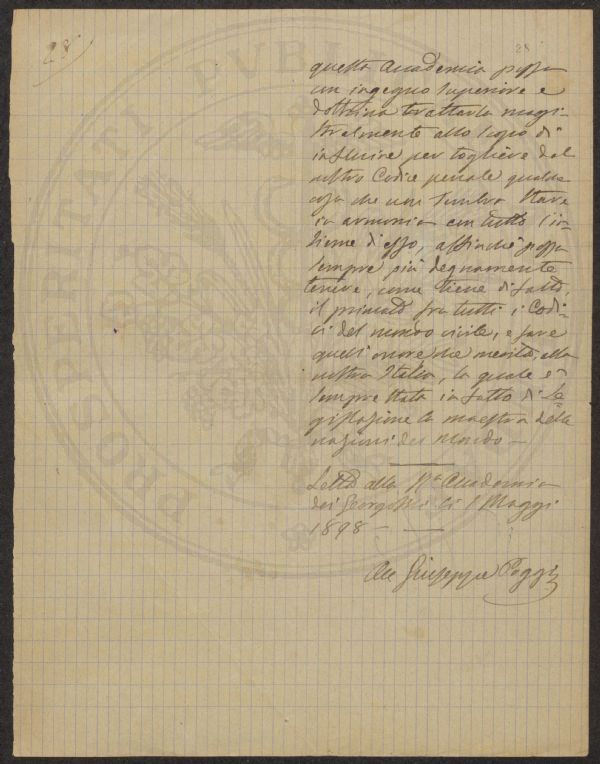 28
28
questa Accademia possa
un ingegno superiore e
dottrina trattarla magi-
stralmente allo scopo di
influire per togliere dal
nostro Codice penale qualche
cosa che non sembra stare
in armonia con tutto l'in-
sieme di esso, affinchè possa
sempre più degnamente
tenere, come tiene di fatto,
il primato fra tutti i Codi-
ci del mondo civile, e fare
quell'onore che merita alla
nostra Italia, la quale è
sempre stata in fatto di Le-
gislazione la maestra delle
nazioni del mondo —
Letto alla R. Accademia
dei Georgofili li 1 Maggi
1898 —
Giuseppe Poggi
PROSPERITATI PUBLI